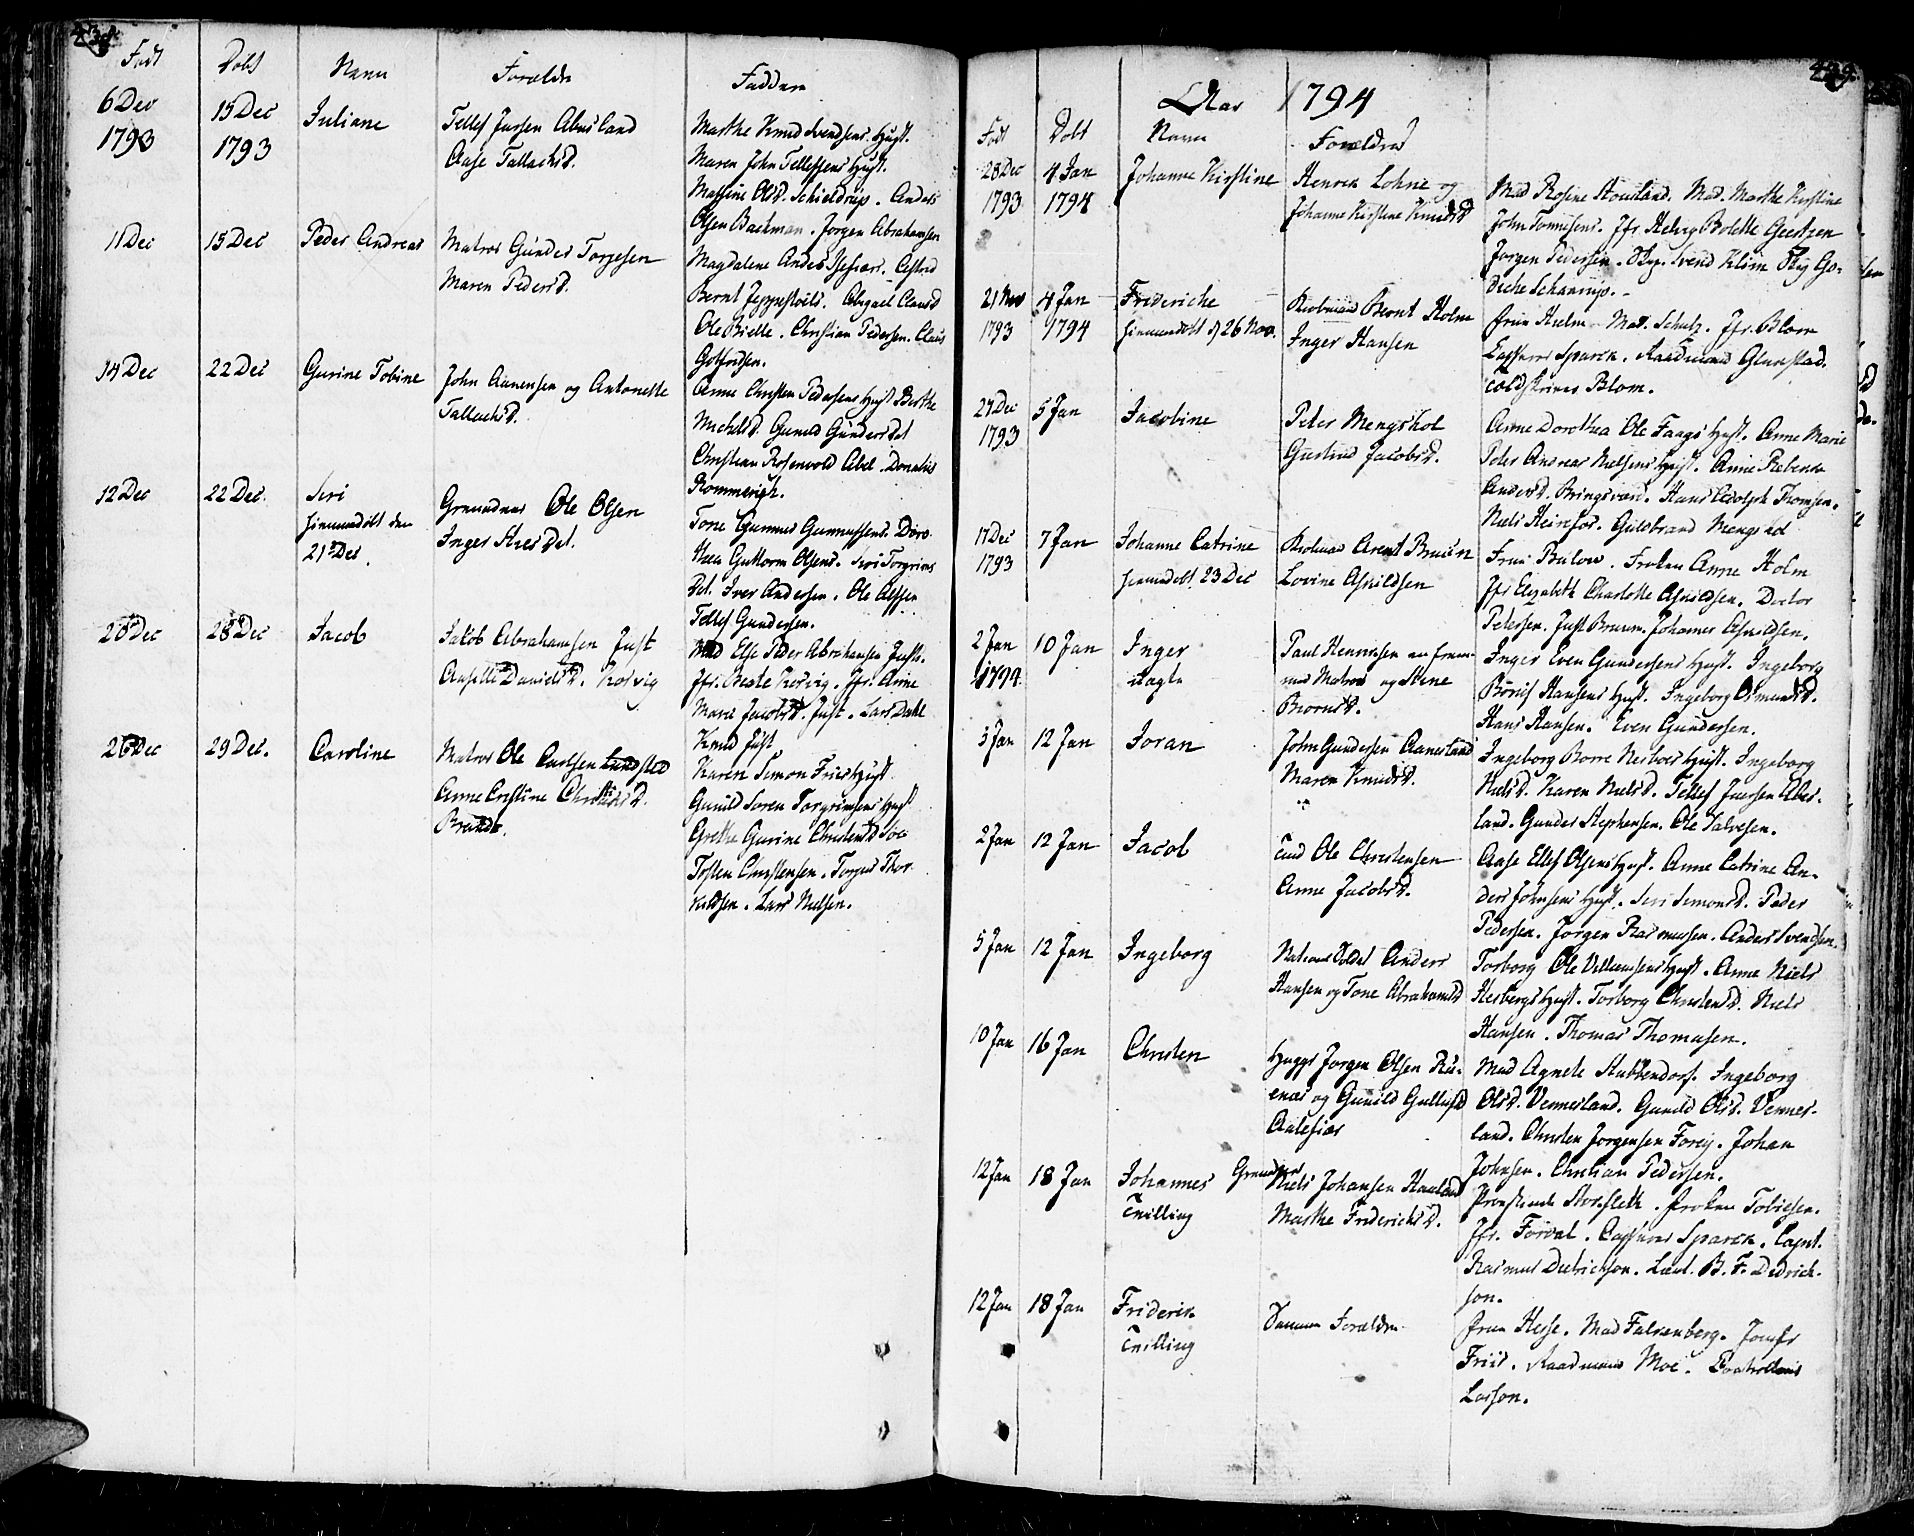 438.
Født
Døbt
Navn
Forældre
Faddere
6 Dec 15 Dec Juliane
1793 1793
Tellef Jursen Abusland
Aase Tallachsd.
Marthe Knud Svendsens Hust.
Maren John Tellefsens Hust.
Massine Olsd. Schieldrup. Anders
Olsen Backman. Jørgen Abrahamsen
11 Dec 15 Dec Peder Andreas
Matros Gunder Torjesen
Maren Pedersd.
Magdalene Anders Isefiærs. Astrid
Bernt Jeppestøls. Abigael Clausd
Ole Bielle. Christian Pedersen. Claus
Gotfredsen.
14 Dec 22 Dec Gurine Tobine
John Aanensen og Antonette
Tallachsd.
Anne Christen Pedersens Hust Berthe
Michelsd. Gunild Gundersdt
Christian Rosenvold Abel. Donatus
Rommerigh.
12 Dec 22 Dec. Siri
hiemmedøbt den
21 Dec.
Grenadeer Ole Olsen
Inger Aresdt.
Tone Gunnus Gunnussens. Doro-
thea Guttorm Olsens. Siri Torgrims
Dt. Iver Andersen. Ole Alfsen
Tellef Gundersen.
20 Dec 28 Dec Jacob
Jacob Abrahamsen Just
Anselle Danielsd. Kervig
Mad Else Peder Abrahamsen Justs.
Jfr. Beate Kervig. Jfr. Anne
Marie Jacobsd. Just. Lars Dahl
Knud Just
26 Dec 29 Dec. Caroline
Matros Ole Carlsen Lundsted
Anne Cristine Christiansd.
Brandt.
Karen Simon Friis Hust
Gunild Søren Torgrimsens Hust
Grethe Gurine Christensd
Tosten Christensen. Torjus Thor-
kildsen. Lars Nielsen.
439.
Aar 1794
Født Døbt Navn Forældre
28 Dec 4 Jan Johanne Kirstine
1793 1794
Henrik Lohne og
Johanne Kirstine Knudsd
Mad Rosine Houeland. Mad. Marthe Kirstine
John Tønnesens. Jfr Helvig Bolette Geertzen
Jørgen Pedersen. Byg. Svend Klim Byg Go-
diche Schaarup.
21 Nov 4 Jan Frideriche
1793 1794 hiemmedøbt d 26 Nov
Kiøbmand Bernt Holm
Inger Hansen
Frue Hulm. Mad. Schulz. Jfr. Blom
Captein Sparck. Raadmand Glanstad.
Toldskriver Blom.
27 Dec 5 Jan Jacobine
1793
Peter Mengshol
Gurine Jacobsd.
Anne Dorothea Ole Faags Hust. Anne Marie
Peter Andreas Nielsens Hust. Anne Rebecca
Andersd. Bringsvær. Hans Adolph Thomsen.
Niels Heinfos. Gulbrand Mengshol
17 Dec 7 Jan Johanne Catrine
1793 hiemmedøbt 23 Dec
Kiøbmand Arent Bruun
Lovine Asvildsen
Frue Bülow. Frøken Anne Holm
Jfr Elizabeth Charlotte Asvildsen. Doctor
Petersen. Just Bruun. Johannes Asvildsen.
2 Jan 10 Jan Inger
1794 uægte
Paul Henrichsen en frem-
med Matros og Stene
Biørnsd.
Inger Even Gundersens Hust. Ingeborg
Børuf Hansens Hust. Ingeborg Osmundsd.
Hans Hansen. Even Gundersen.
3 Jan 12 Jan Joran
John Gundersen Aanesland
Maren Knudsd.
Ingeborg Borre Nesboes Hust. Ingeborg
Nielsd. Karen Nielsd. Tellef Jursen Abus-
land. Gunder Stephensen. Ole Salvesen.
2 Jan 12 Jan Jacob
Ole Christensen
Anne Jacobsd.
Aase Ellef Olsens Hust. Anne Catrine An-
ders Johnsens Hust. Siri Simonsd. Peder
Pedersen. Jørgen Rasmussen. Anders Svendsen.
5 Jan 12 Jan Ingeborg
National Soldat Anders
Hansen og Tone Abrahamsd
Torborg Ole Villumsens Hust. Anne Niels
Hesbergs Hust. Torborg Christensd. Niels
Hansen. Thomas Thomasen.
10 Jan 16 Jan Christen
Huggr Jørgen Olsen Ru-
enæs og Gunild Gullufsd
Aalefiær
Mad Agnete Stubbendorf. Ingeborg
Olsd. Vennesland. Gunild Olsd. Vennes-
land. Christen Jørgensen Forøy. Johan
Johnsen. Christian Pedersen.
12 Jan 18 Jan Johannes
Tvilling
Grenadeer
Niels Johansen Haaland
Marthe Fridericksd.
Provstinde Storsleth. Frøken Tobiesen.
Jfr. Forval. Captein Sparck. Capt.
Rasmus Dietrichson. Lieut. B. F. Didrich-
son.
12 Jan 18 Jan Friderik
Tvilling
Samme Forældre
Frue Hesse. Mad Falkenberg. Jomfr
Friis. Raadmand Moe. Controlleur
Larson.